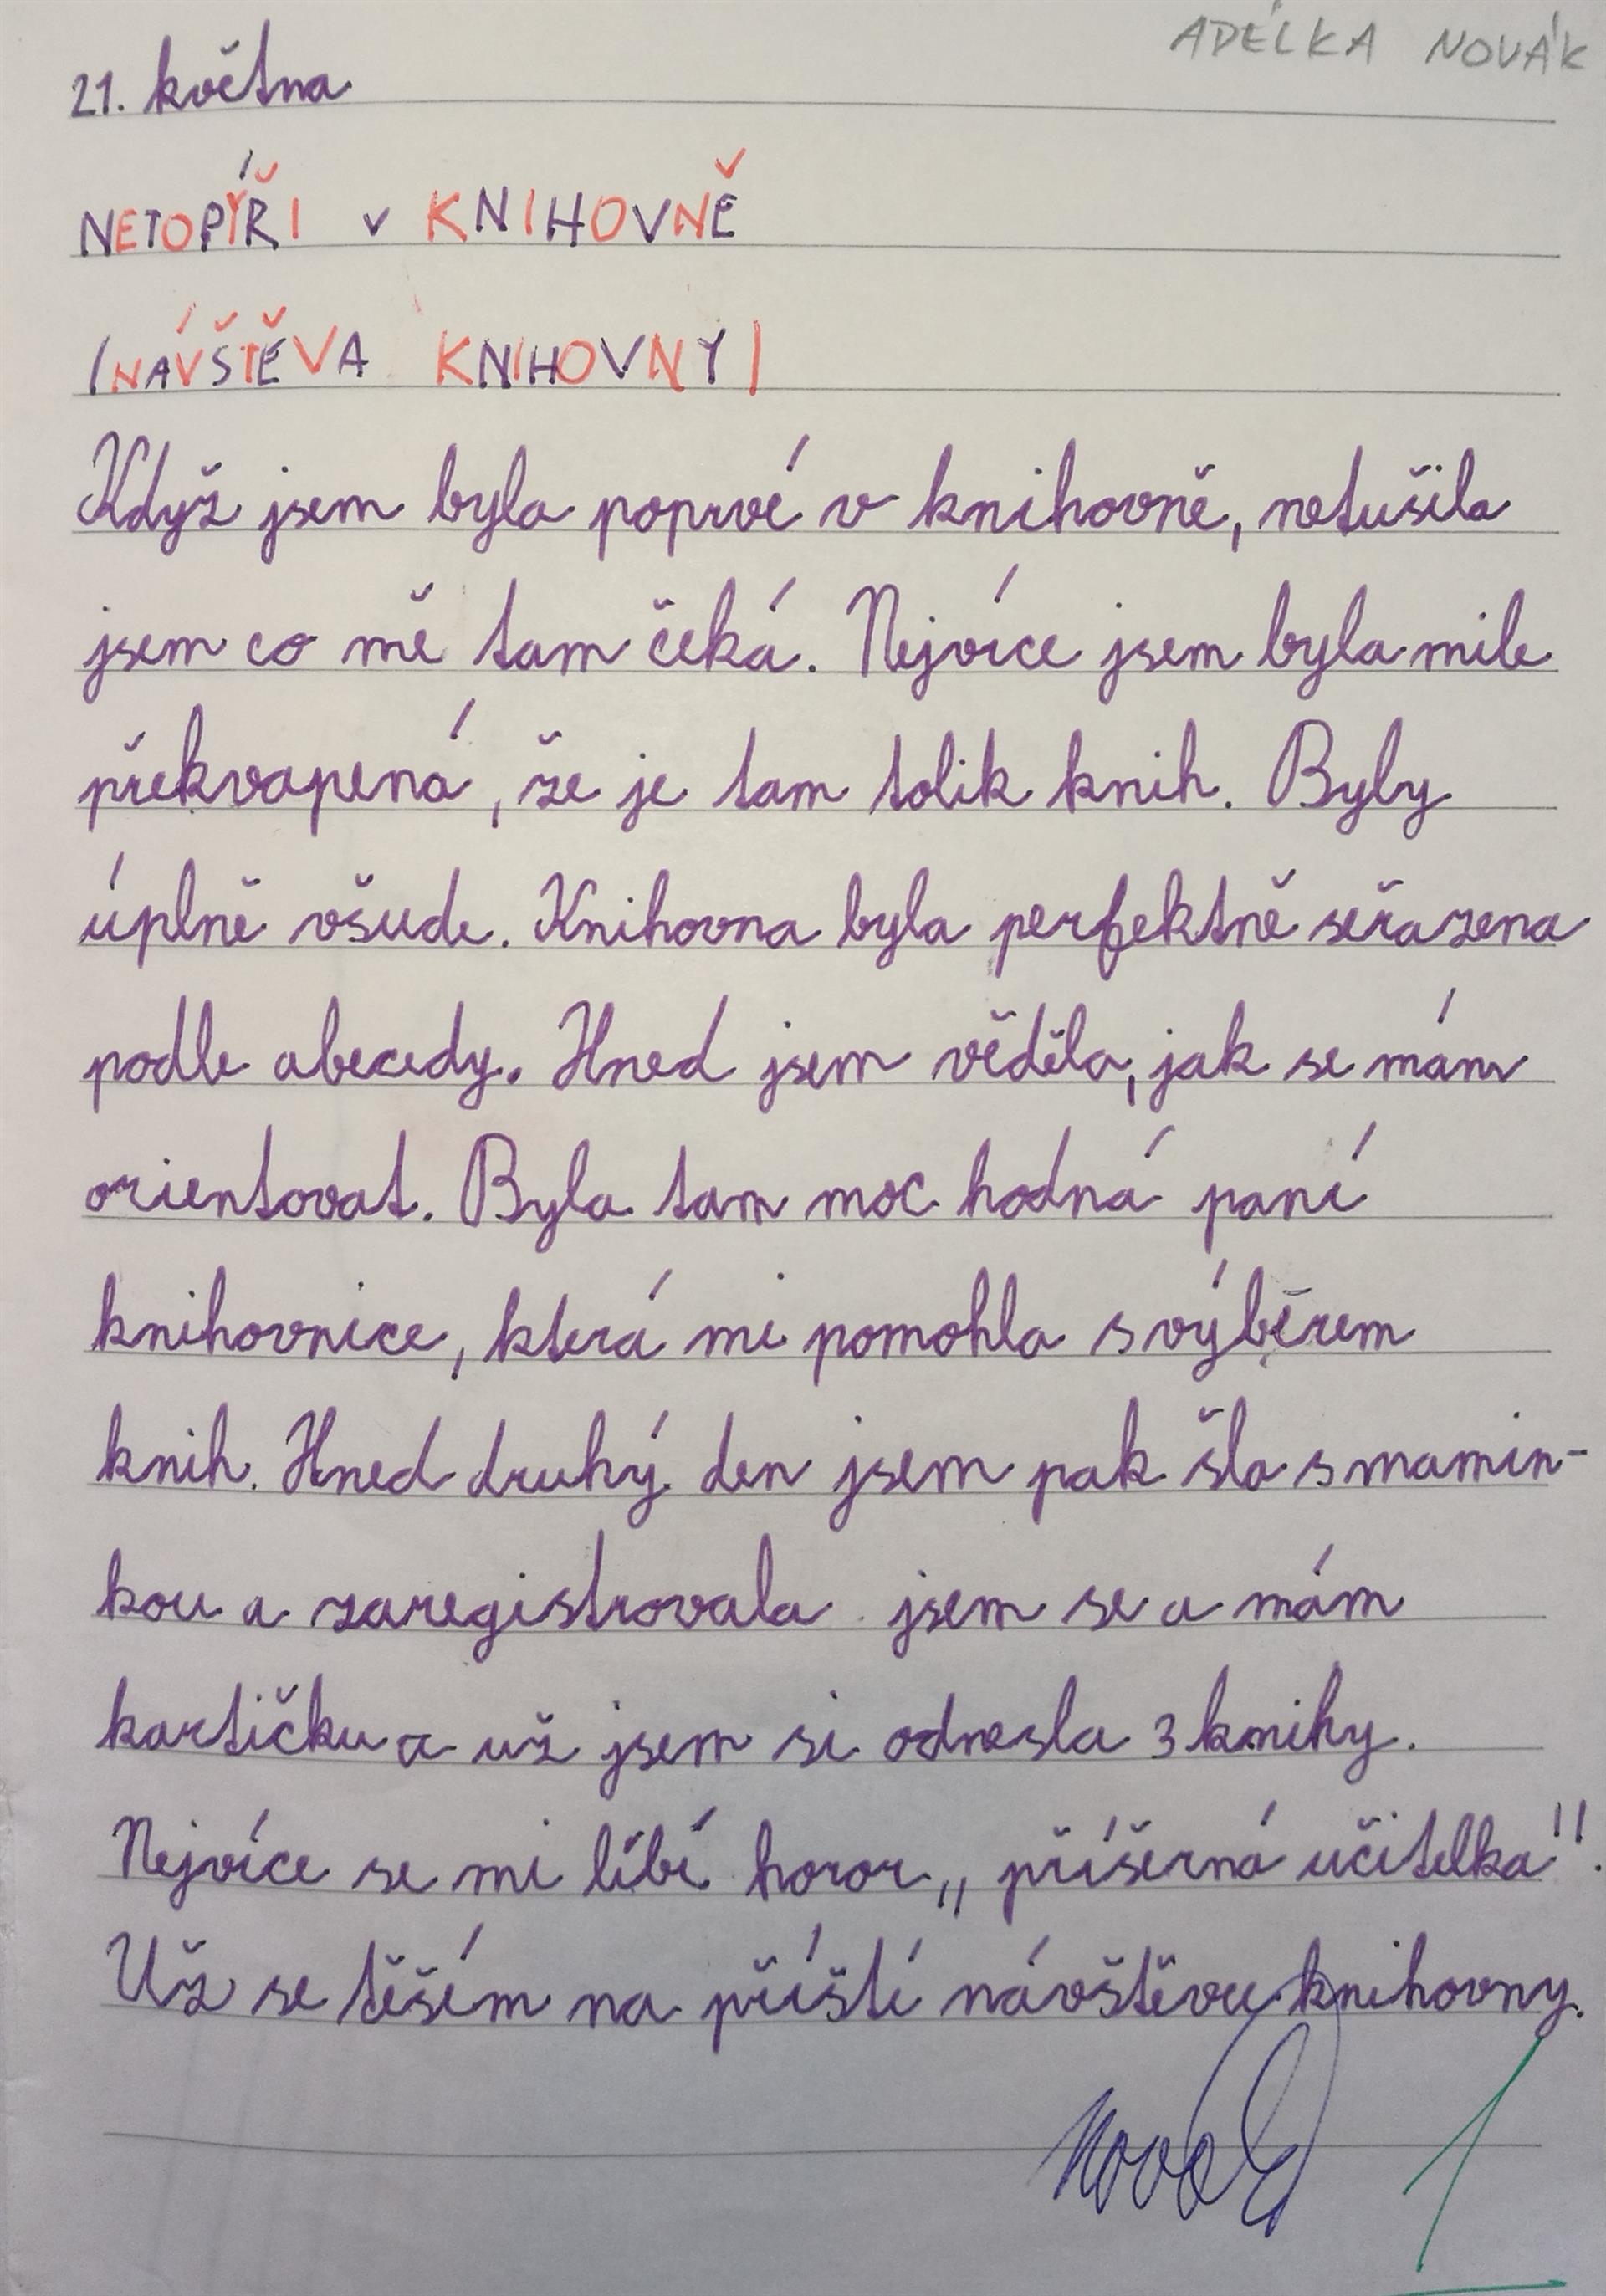 ADÉLKA NOVÁK
21. května
NETOPÝŘI V KNIHOVNĚ
(NÁVŠTĚVA KNIHOVNY)
Když jsem byla poprvé v knihovně, netušila
jsem co mě tam čeká. Nejvíce jsem byla mile
překvapená, že je tam tolik knih. Byly
úplně všude. Knihovna byla perfektně seřazena
podle abecedy. Hned jsem věděla, jak se mám
orientovat. Byla tam moc hodná paní
knihovnice, která mi pomohla s výběrem
knih. Hned druhý den jsem pak šla s mamin-
kou a zaregistrovala jsem se a mám
kartičku a už jsem si odnesla 3 knihy.
Nejvíce se mi líbí horor „příšerná učitelka".
Už se těším na příští návštěvu knihovny.
Novák 1